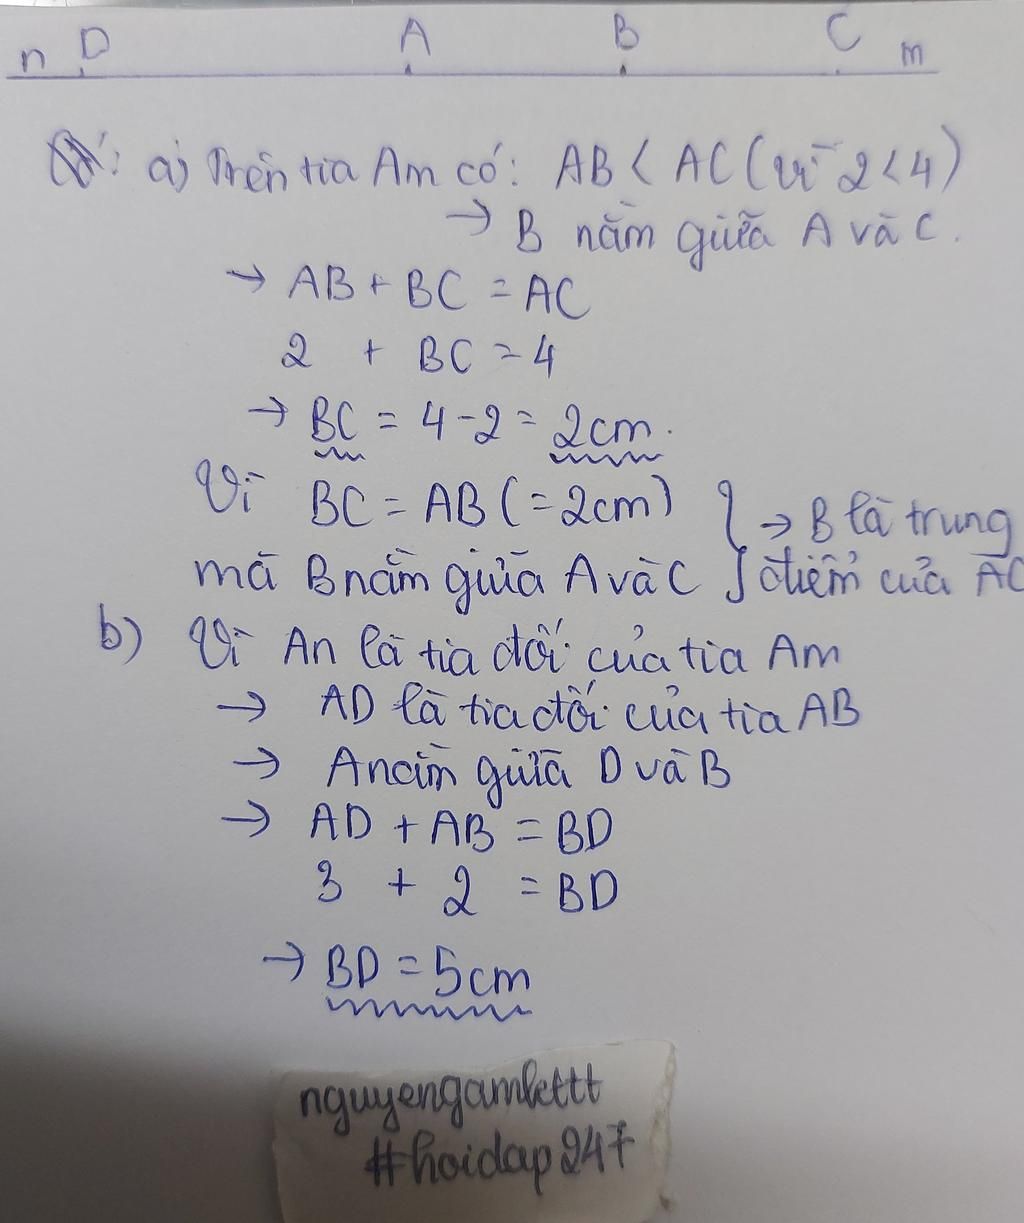 n D A B C m
a) Trên tia Am có: AB < AC (vì 2 < 4)
→ B nằm giữa A và C.
→ AB + BC = AC
2 + BC = 4
→ BC = 4 - 2 = 2cm.
Vì BC = AB (= 2cm)
mà B nằm giữa A và C } → B là trung điểm của AC
b) Vì An là tia đối của tia Am
→ AD là tia đối của tia AB
→ A nằm giữa D và B
→ AD + AB = BD
3 + 2 = BD
→ BD = 5cm
nguyengamkttt
#hoidap247